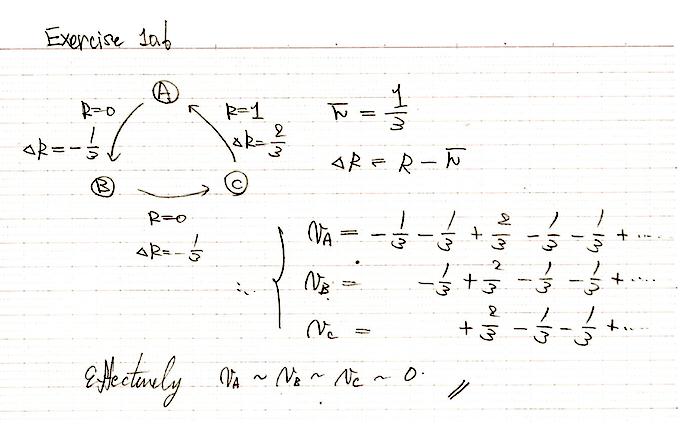 Exercise 1ab
A
R=0
R=1
r̄ = 1/3
ΔR=-1/3
ΔR=2/3
ΔR = R - r̄
B
C
R=0
ΔR=-1/3
∴ { V_A = -1/3 - 1/3 + 2/3 - 1/3 - 1/3 + ....
V_B = -1/3 + 2/3 - 1/3 - 1/3 + ....
V_C = +2/3 - 1/3 - 1/3 + ....
Effectively V_A ~ V_B ~ V_C ~ 0. //